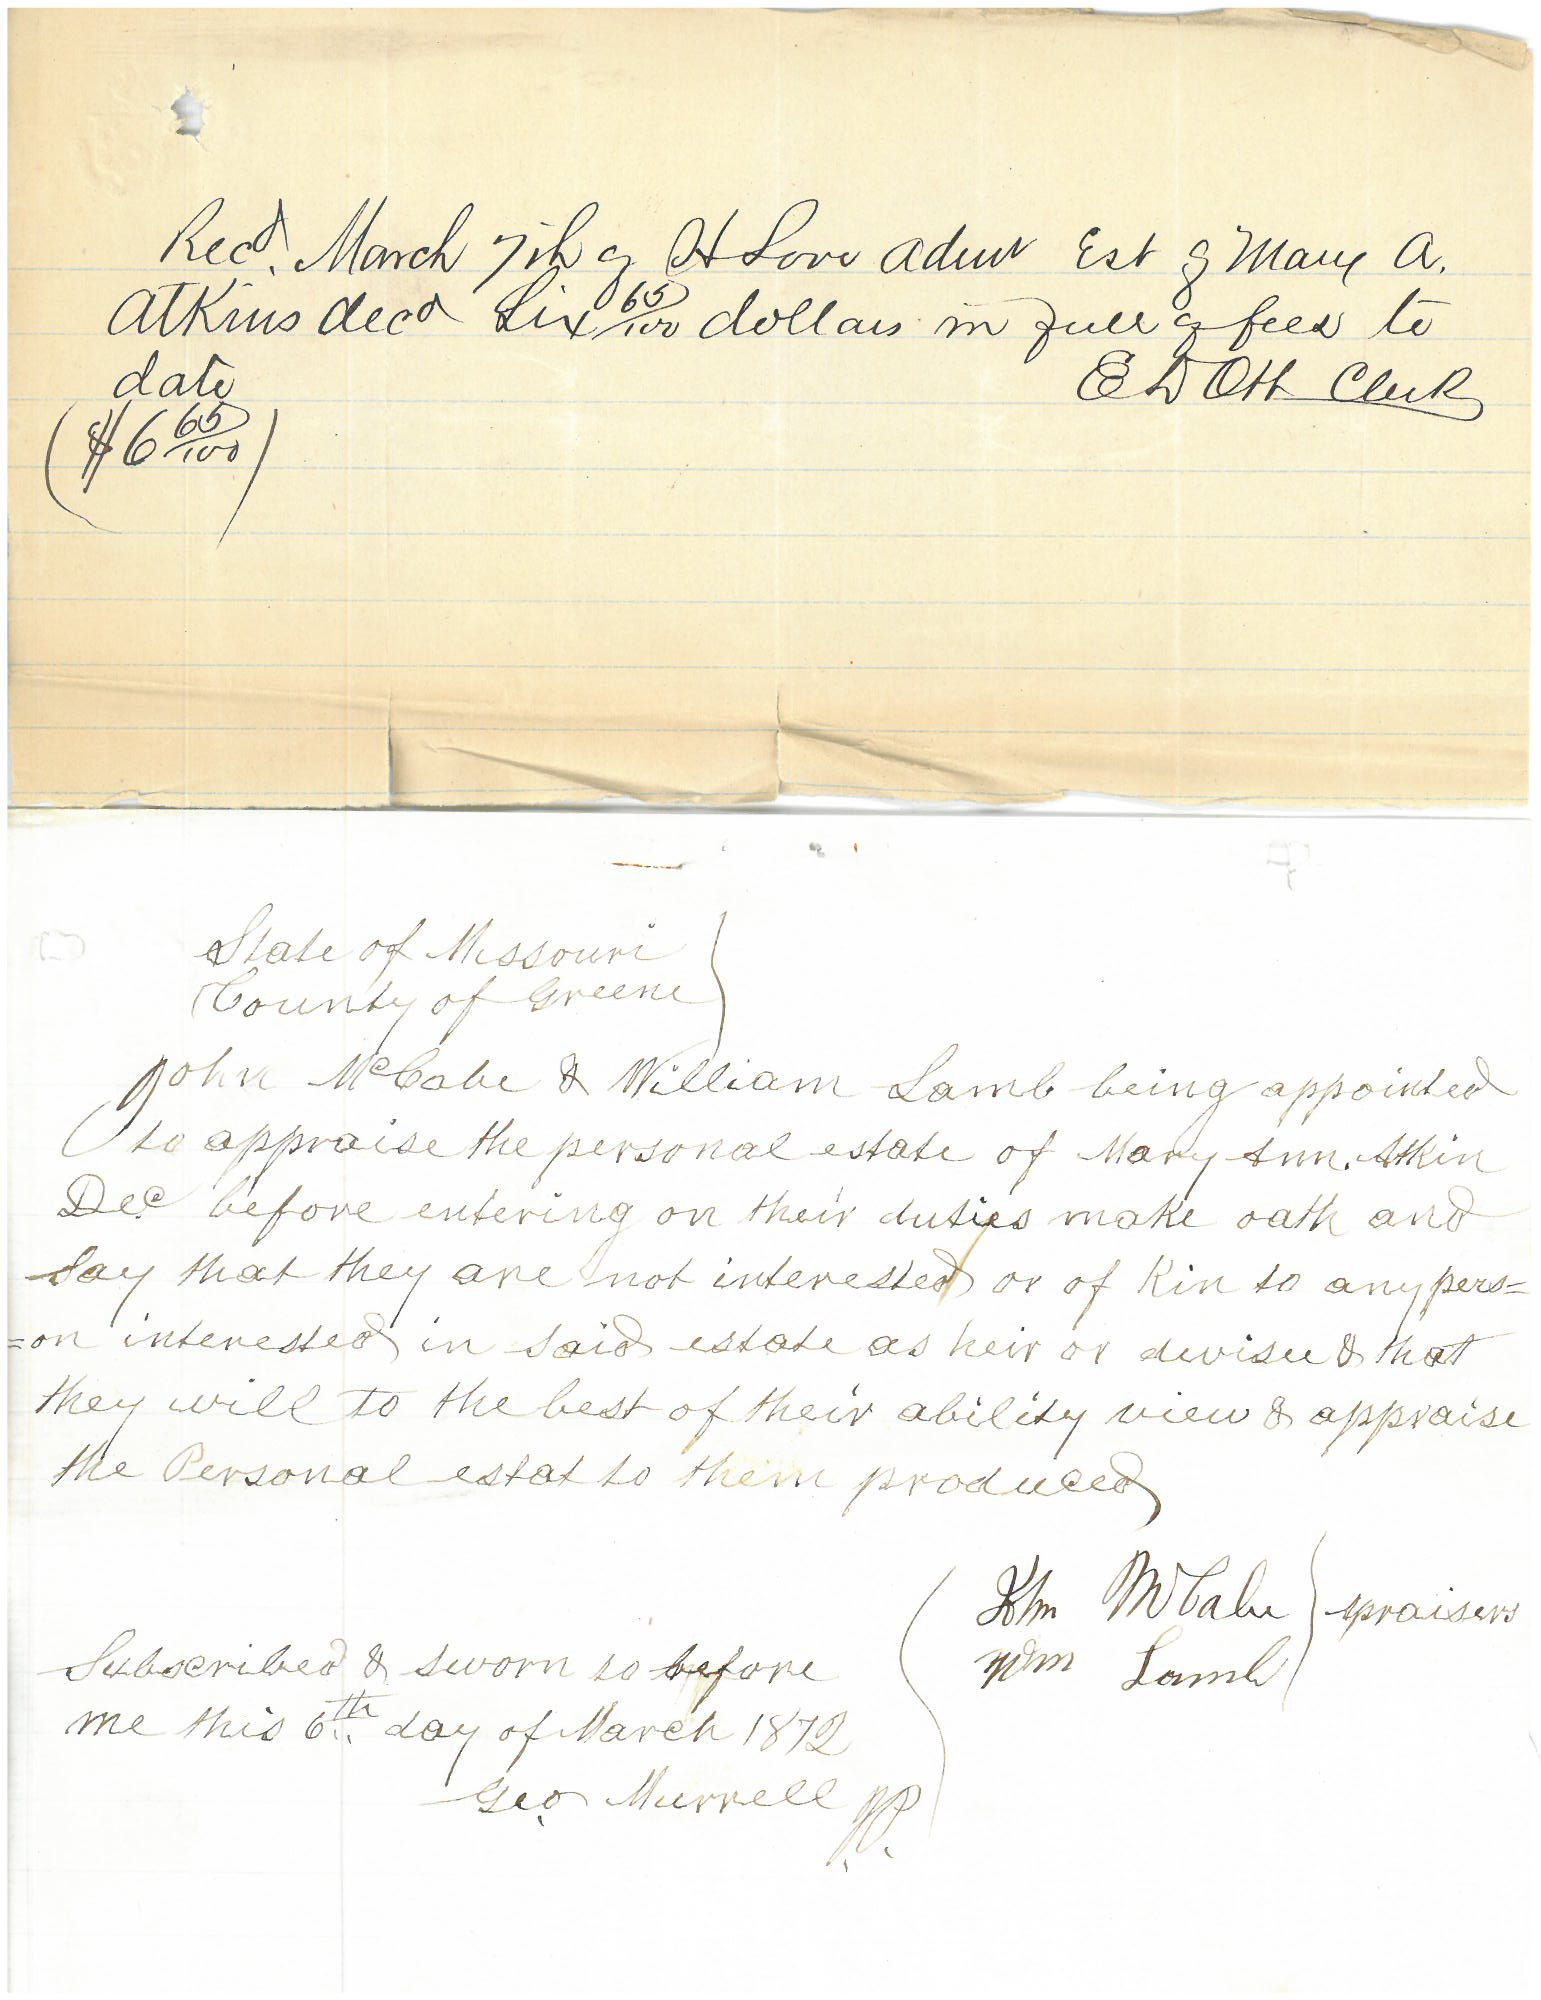 Recd. March 7th of H Love Admr Est of Mary A.
Atkins decd Six 65/100 dollars in full of fees to
date E D Ott Clerk
($6 65/100)
State of Missouri
County of Greene
John McCabe & William Lamb being appointed
to appraise the personal estate of Mary Ann. Atkin
Dec. before entering on their duties make oath and
Say that they are not interested or of Kin to any pers=
=on interested in said estate as heir or devisee & that
they will to the best of their ability view & appraise
the Personal estat to them produced
John McCabe
Wm Lamb
praisers
Subscribed & sworn to before
me this 6th day of March 1872
Geo. Murrell J.P.